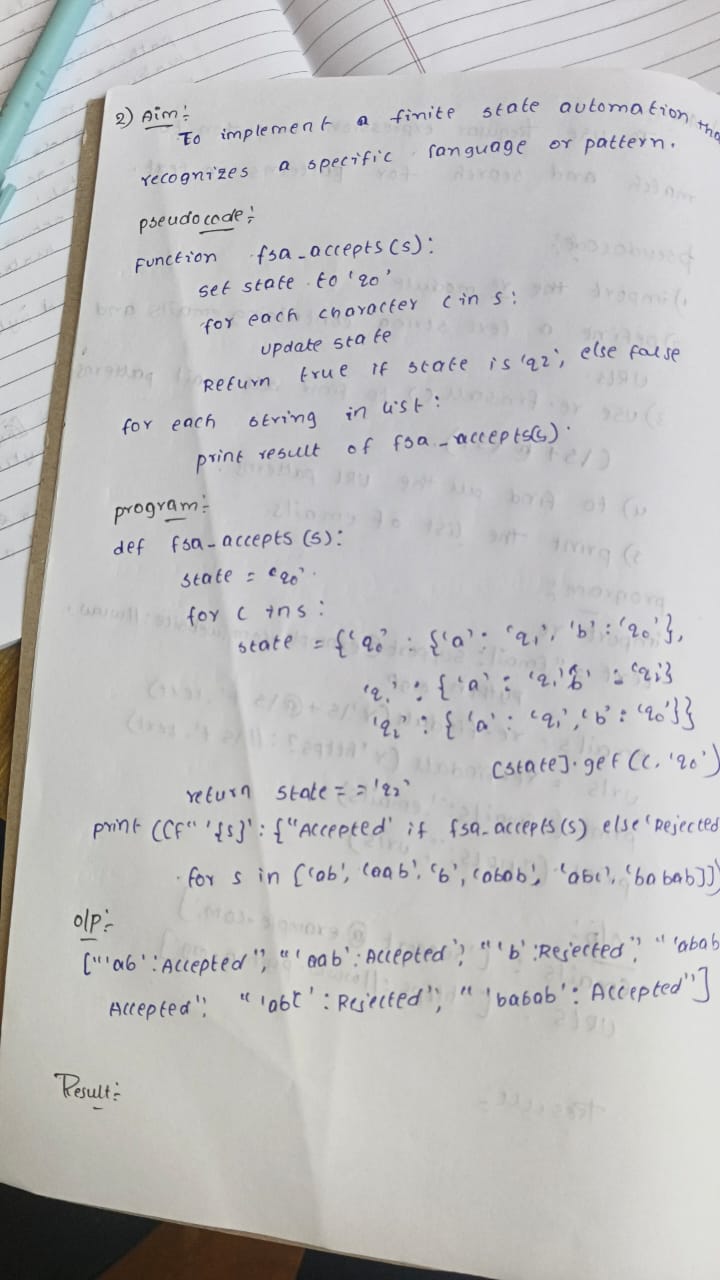 2) Aim:
To implement a finite state automation tha
recognizes a specific language or pattern.
pseudocode:
Function fsa_accepts (s):
set state to 'q0'
for each character c in s:
update state
Return true if state is 'q2', else false
for each string in list:
print result of fsa_accepts(s).
program:
def fsa_accepts (s):
state = 'q0'
for c in s:
state = {'q0' : {'a' : 'q1', 'b' : 'q0'},
: {'a' : 'q1'
'q2' : {'a' : 'q1', 'b' : 'q0'}}
[state].get (c, 'q0')
return state = = 'q2'
print ([f" '{s}' : {"Accepted' if fsa_accepts(s) else 'Rejected
for s in ['ab', 'aab', 'b', 'abab', 'abc', 'babab]])
o/p:-
["'ab' : Accepted", "'aab' : Accepted", "'b' : Rejected", "'abab
Accepted", "'abc' : Rejected", "'babab' : Accepted"]
Result:-